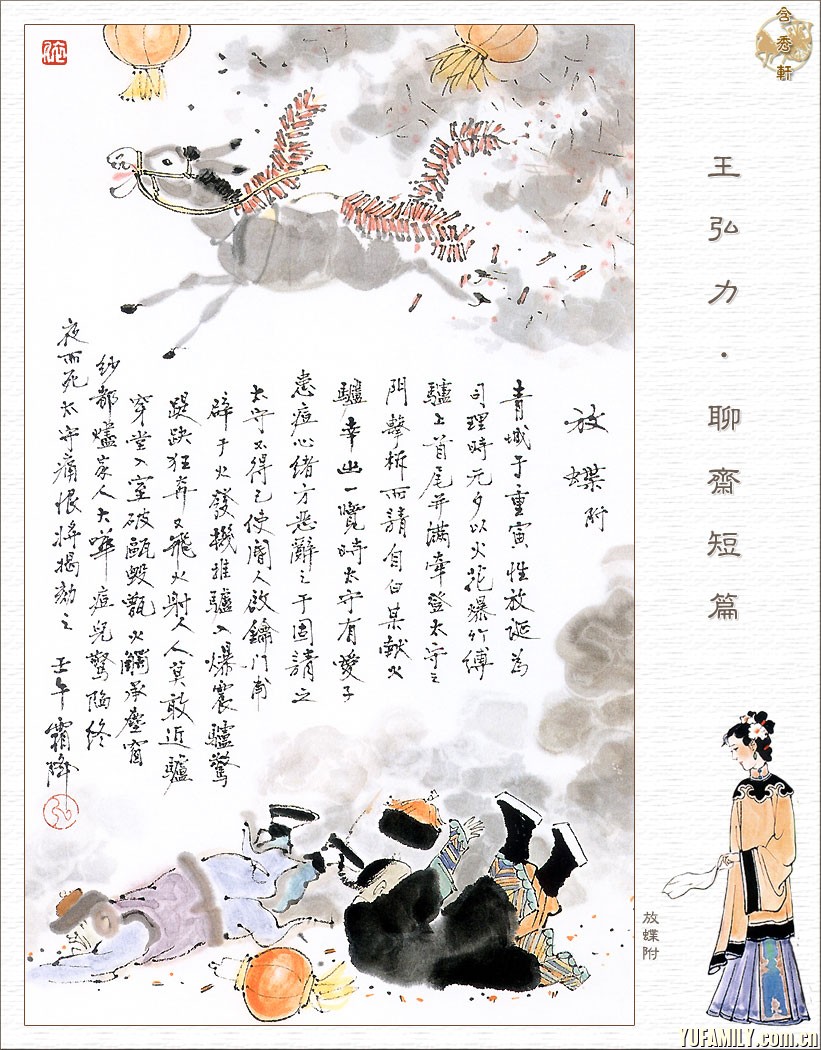 含秀軒
王弘力·聊齋短篇
放蝶附
青城于重寅性放誕為
司理時元夕以火花爆竹縛
驢上首尾并滿牽登太守之
門擊柝而請自白某献火
驢幸出一覽時太守有愛子
患痘心緒方惡辭之于固請之
太守不得已使閽人啟鑰門甫
辟于火發機推驢入爆震驢驚
踶趹狂奔又飛火射人人莫敢近驢
穿堂入室破甌毀甑火觸承塵窗
紗都燼家人大嘩痘兒驚陷終
夜而死太守痛恨將揭劾之 壬午霜降
放蝶附
YUFAMILY.com.cn